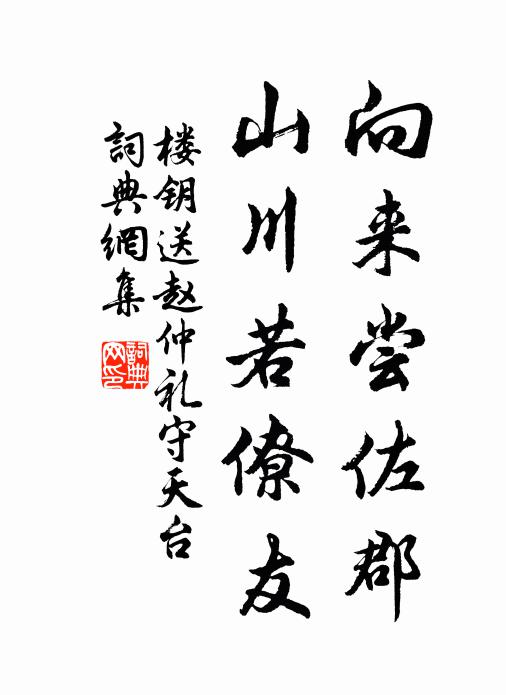 向来尝佐郡
山川若僚友
楼钥送赵仲礼守天台
詞典網集
詞典网印